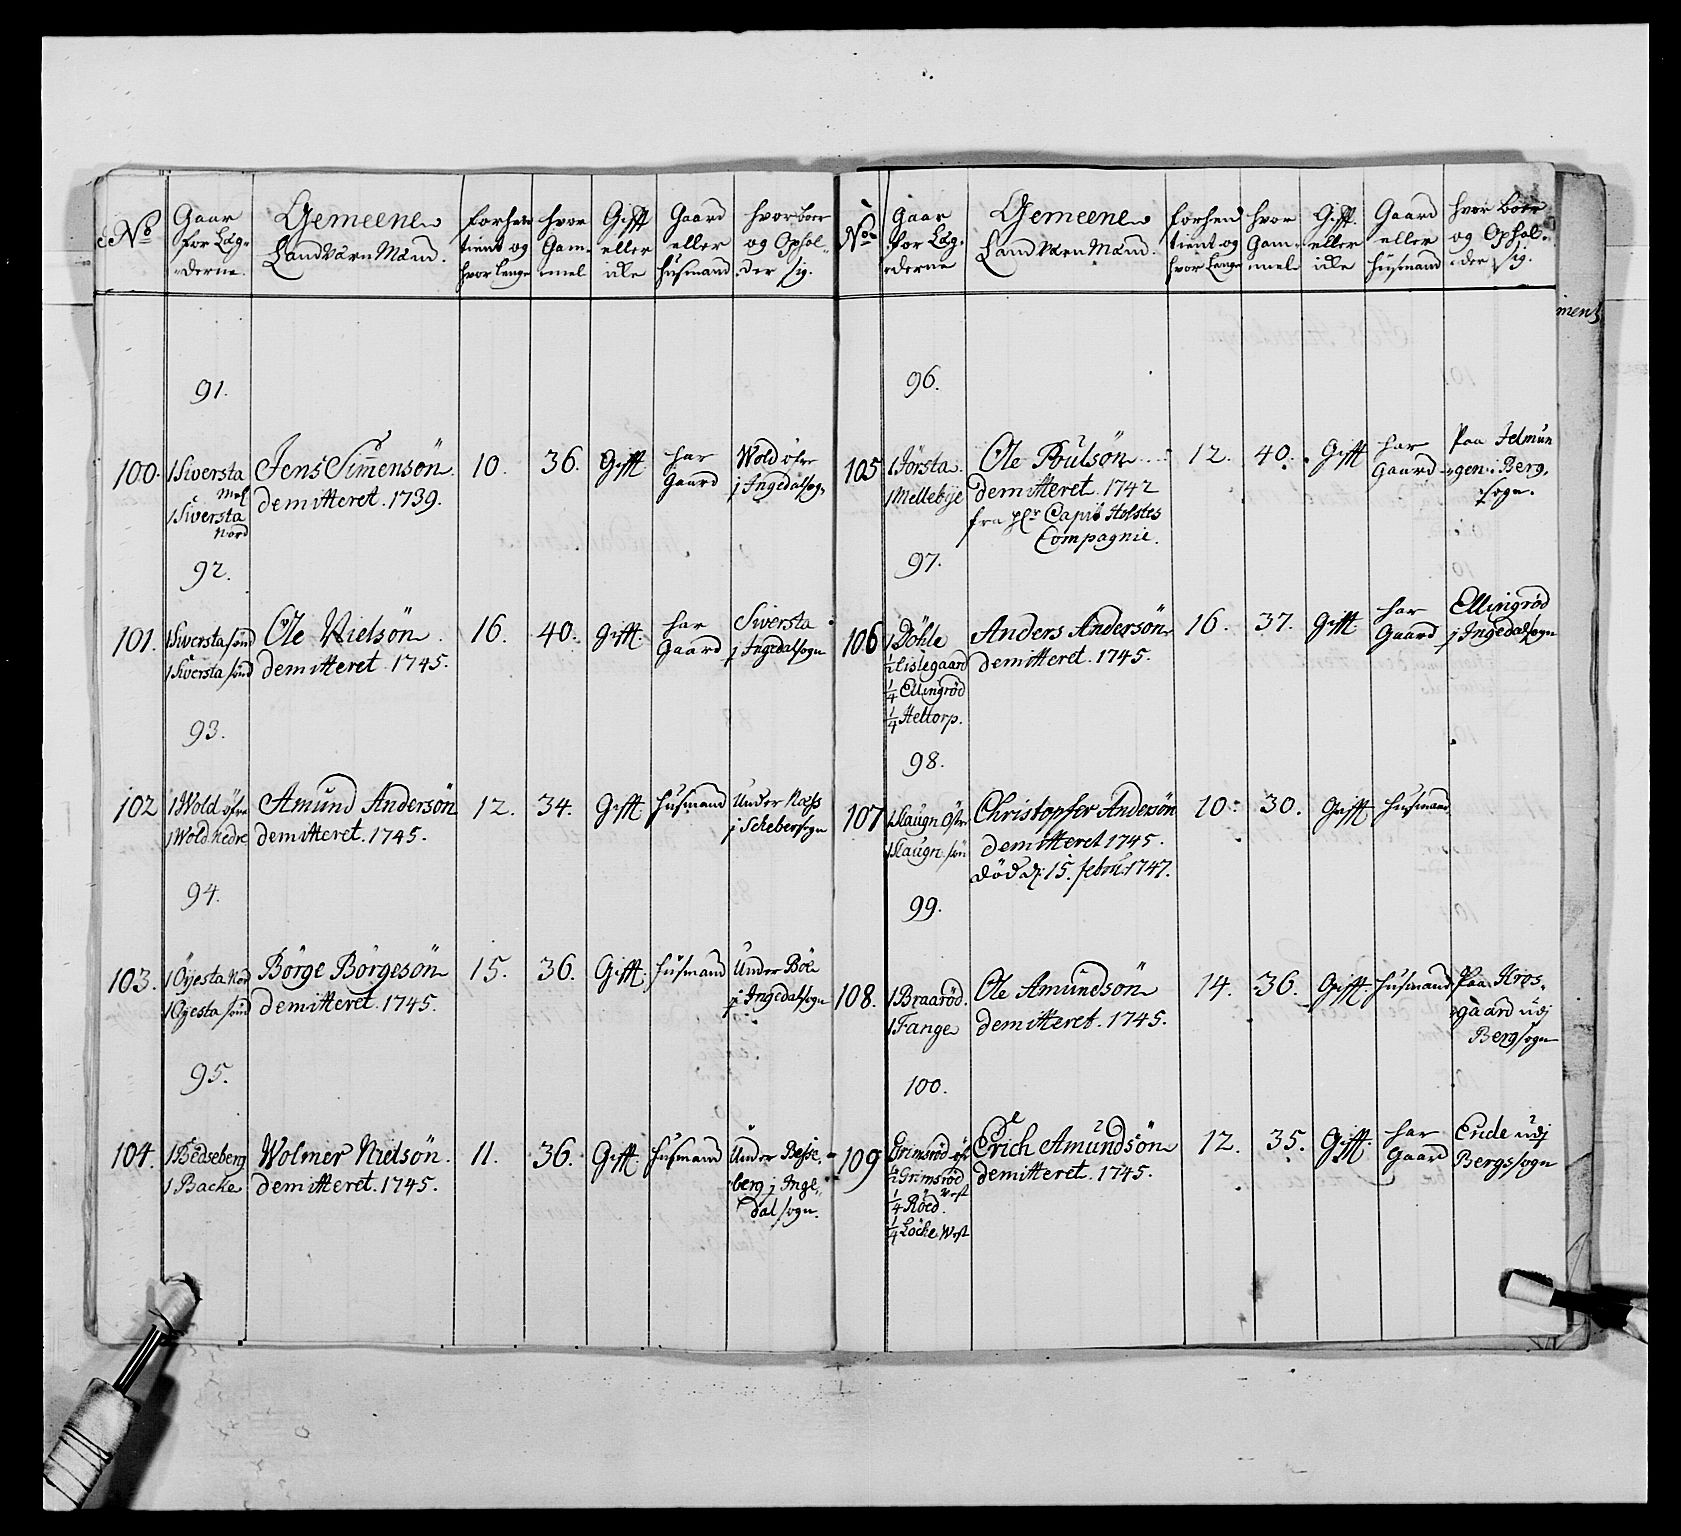 No
Gaar
for Læg-
derne.
Gemeene
Land Værn Mænd.
forhen
tient og
hvor lenge
hvor
Gam-
mel
Gifft
eller
icke
Gaard
eller
Husmand
hvor boer
og Ophol-
der sig.
91.
100.
1 Siversta
Mel
1 Siversta
Nord
Jens Simensön
demitteret. 1739.
10.
36.
Gifft
har
Gaard
Wold öfre
j Ingedalsogn
92.
101.
1 Siversta sönd
1 Siversta sönd
Ole Nielsön.
demitteret. 1745.
16.
40.
Gifft.
har
Gaard
Siversta
j Ingedalsogn
93.
102
1 Wold öfre
1 Wold Nedre
Amund Andersön
demitteret. 1745.
12.
34.
Gifft
Husmand
Under Næss
j Schebersogn
94.
103.
1 Öyesta Nor
1 Oyesta sönd
Börge Börgesön
demitteret. 1745.
15.
36.
Gifft.
Husmand
Under Böe
j Ingedalsogn
95.
104.
1 Bedseberg
1 Backe
Wolmer Nielsön.
demitteret. 1745.
11.
36.
Gifft
Husmand
Under Besse-
berg j Inge-
dal sogn.
No
Gaar
for Læg-
derne
Gemeene
LandVærn Mænd.
forhen
tient og
hvor lenge
hvor
Gam-
mel
Gifft
eller
icke
Gaard
eller
Husmand
hvor boer
og Ophol-
der sig.
96.
105
1 Jörsta.
1 Mellebye
Ole Poulsön
demitteret. 1742
fra Capit Holstes
Compagnie.
12.
40.
Gifft
har
Gaard
Paa Jelmun
gen i Berg
sogn.
97.
106
1 Döhle
1/2 Lislegaard
1/4 Ellingröd
1/4 Heltorp.
Anders Andersön
demitteret. 1745.
16.
37.
Gifft
har
Gaard
Ellingröd
j Ingedalsogn
98.
107
1 Laugn Östre
1 Laugn sön
Christopfer Andersön
demitteret 1745.
död d: 15. febru: 1747.
10.
30.
Gifft
Husmand
99.
108.
1 Braaröd.
1 Tange
Ole Amundsön
demitteret. 1745.
14.
36.
Gifft.
Husmand
Paa
gaard udj
Bergsogn
100.
109
Grimsröd öst
1/2 Grimsröd
West
1/4 Röed.
1/4 Löcke West
Erich Amundsön
demitteret. 1745.
12.
35.
Gifft.
har
Gaard
Ende udj
Bergssogn
ment